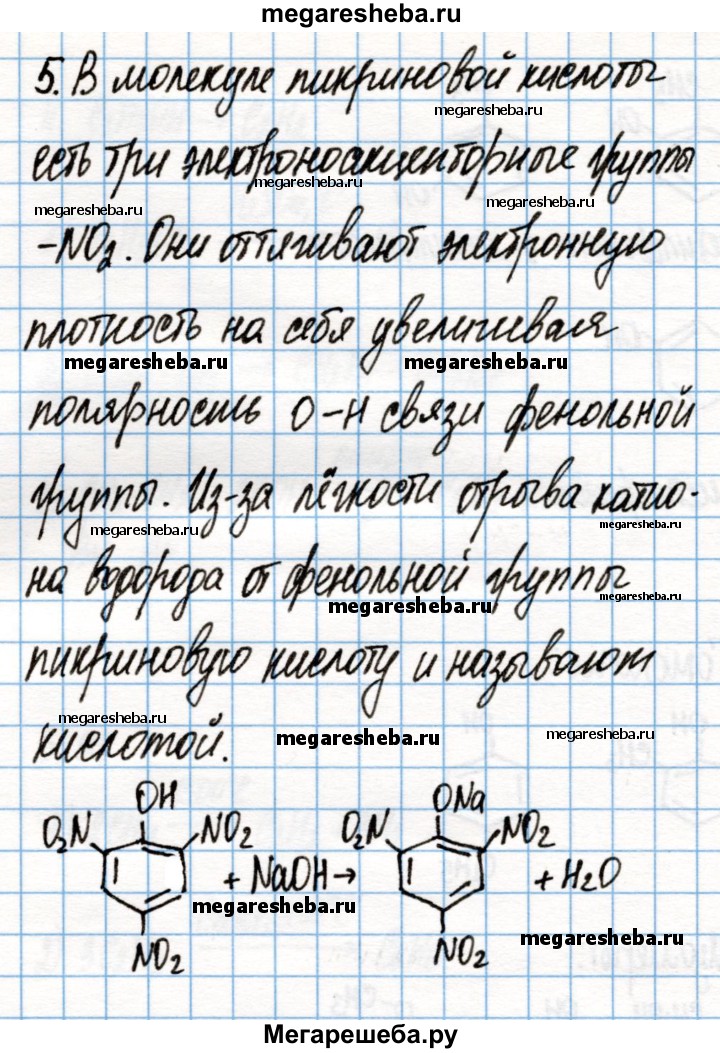 megaresheba.ru
5. В молекуле пикриновой кислоты
megaresheba.ru
есть три электроноакцепторные группы
megaresheba.ru
megaresheba.ru
megaresheba.ru
-NO₂. Они оттягивают электронную
плотность на себя увеличивая
megaresheba.ru
megaresheba.ru
полярность O-H связи фенольной
группы. Из-за лёгкости отрыва катио-
megaresheba.ru
megaresheba.ru
на водорода от фенольной группы
megaresheba.ru
megaresheba.ru
пикриновую кислоту и называют
megaresheba.ru
кислотой.
megaresheba.ru
megaresheba.ru
OH ONa
O₂N NO₂ O₂N NO₂
+ NaOH → + H₂O
megaresheba.ru
NO₂ NO₂
megaresheba.ru
Мегарешеба.ру